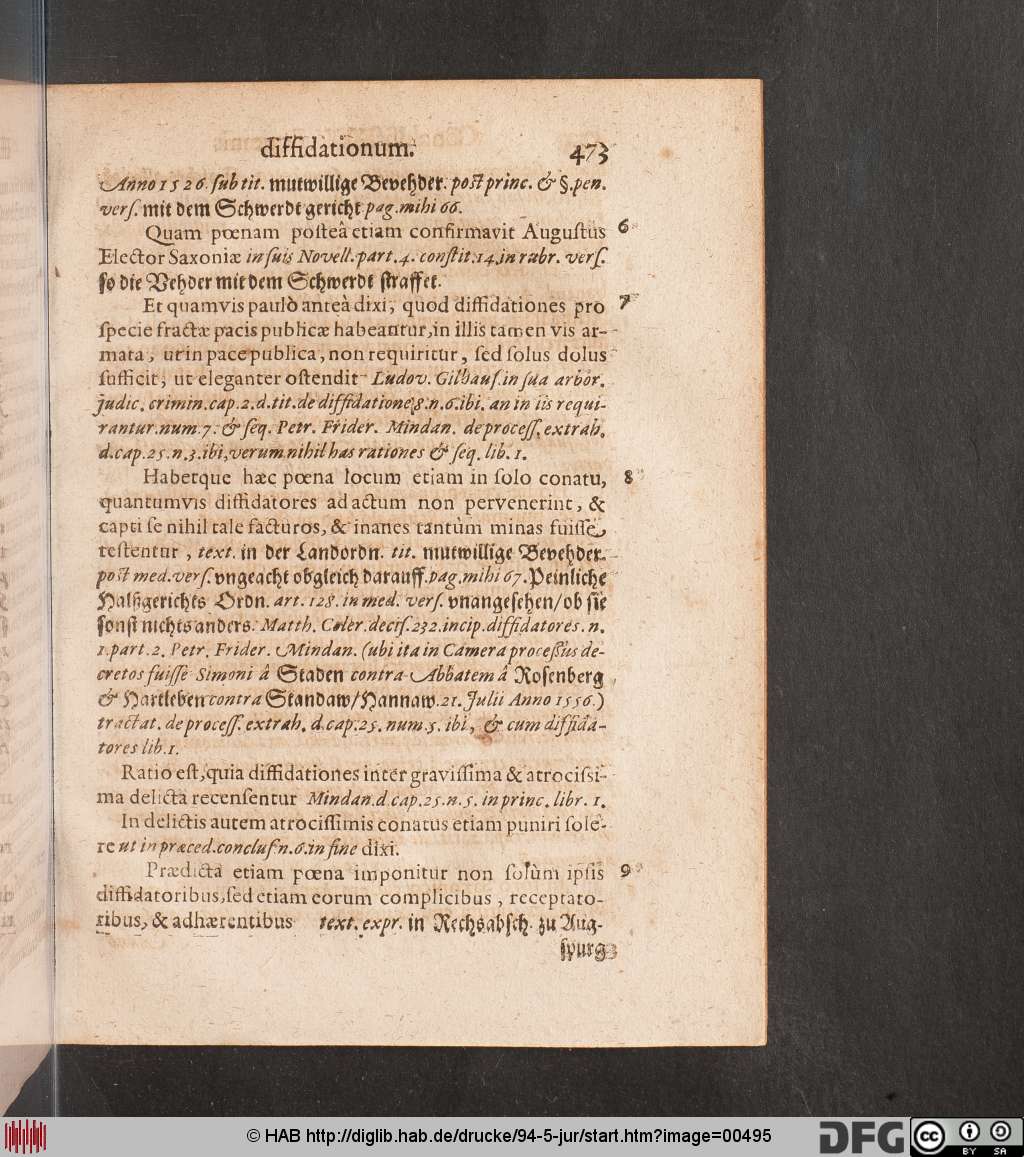 diffidationum. 473
Anno 1526. sub tit. mutwillige Bevehder. post princ. & §. pen.
vers. mit dem Schwerdt gericht pag. mihi 66.
Quam pœnam posteà etiam confirmavit Augustus 6
Elector Saxoniæ in suis Novell. part. 4. constit. 14. in rubr. vers.
so die Vehder mit dem Schwerdt straffet.
Et quamvis paulò anteà dixi, quod diffidationes pro 7
specie fractæ pacis publicæ habeantur, in illis tamen vis ar-
mata, ut in pace publica, non requiritur, sed solus dolus
sufficit, ut eleganter ostendit Ludov. Gilhaus. in sua arbor.
judic. crimin. cap. 2. d. tit. de diffidatione 8. n. 6. ibi. an in iis requi-
rantur. num. 7. & seq. Petr. Frider. Mindan. de process. extrah.
d. cap. 25. n. 3. ibi, verum nihil has rationes & seq. lib. 1.
Habetque hæc pœna locum etiam in solo conatu, 8
quantumvis diffidatores ad actum non pervenerint, &
capti se nihil tale facturos, & inanes tantùm minas fuisse
testentur, text. in der Landordn. tit. mutwillige Bevehder.
post med. vers. vngeacht obgleich darauff. pag. mihi 67. Peinliche
Halßgerichts Ordn. art. 128. in med. vers. vnangesehen/ob sie
sonst nichts anders. Matth. Coler. decis. 232. incip. diffidatores. n.
1. part. 2. Petr. Frider. Mindan. (ubi ita in Camera processus de-
cretos fuisse Simoni â Staden contra Abbatem â Rosenberg
& Hartleben contra Standaw/Hannaw. 21. Julii Anno 1556.)
tractat. de process. extrah. d. cap. 25. num. 5. ibi, & cum diffida-
tores lib. 1.
Ratio est, quia diffidationes inter gravissima & atrocissi-
ma delicta recensentur Mindan. d. cap. 25. n. 5. in princ. libr. 1.
In delictis autem atrocissimis conatus etiam puniri sole-
re ut in præced. conclus. n. 6. in fine dixi.
Prædicta etiam pœna imponitur non solùm ipsis 9
diffidatoribus, sed etiam eorum complicibus, receptato-
ribus, & adhærentibus text. expr. in Rechsabsch. zu Aug-
spurg
© HAB http://diglib.hab.de/drucke/94-5-jur/start.htm?image=00495
DFG cc BY SA